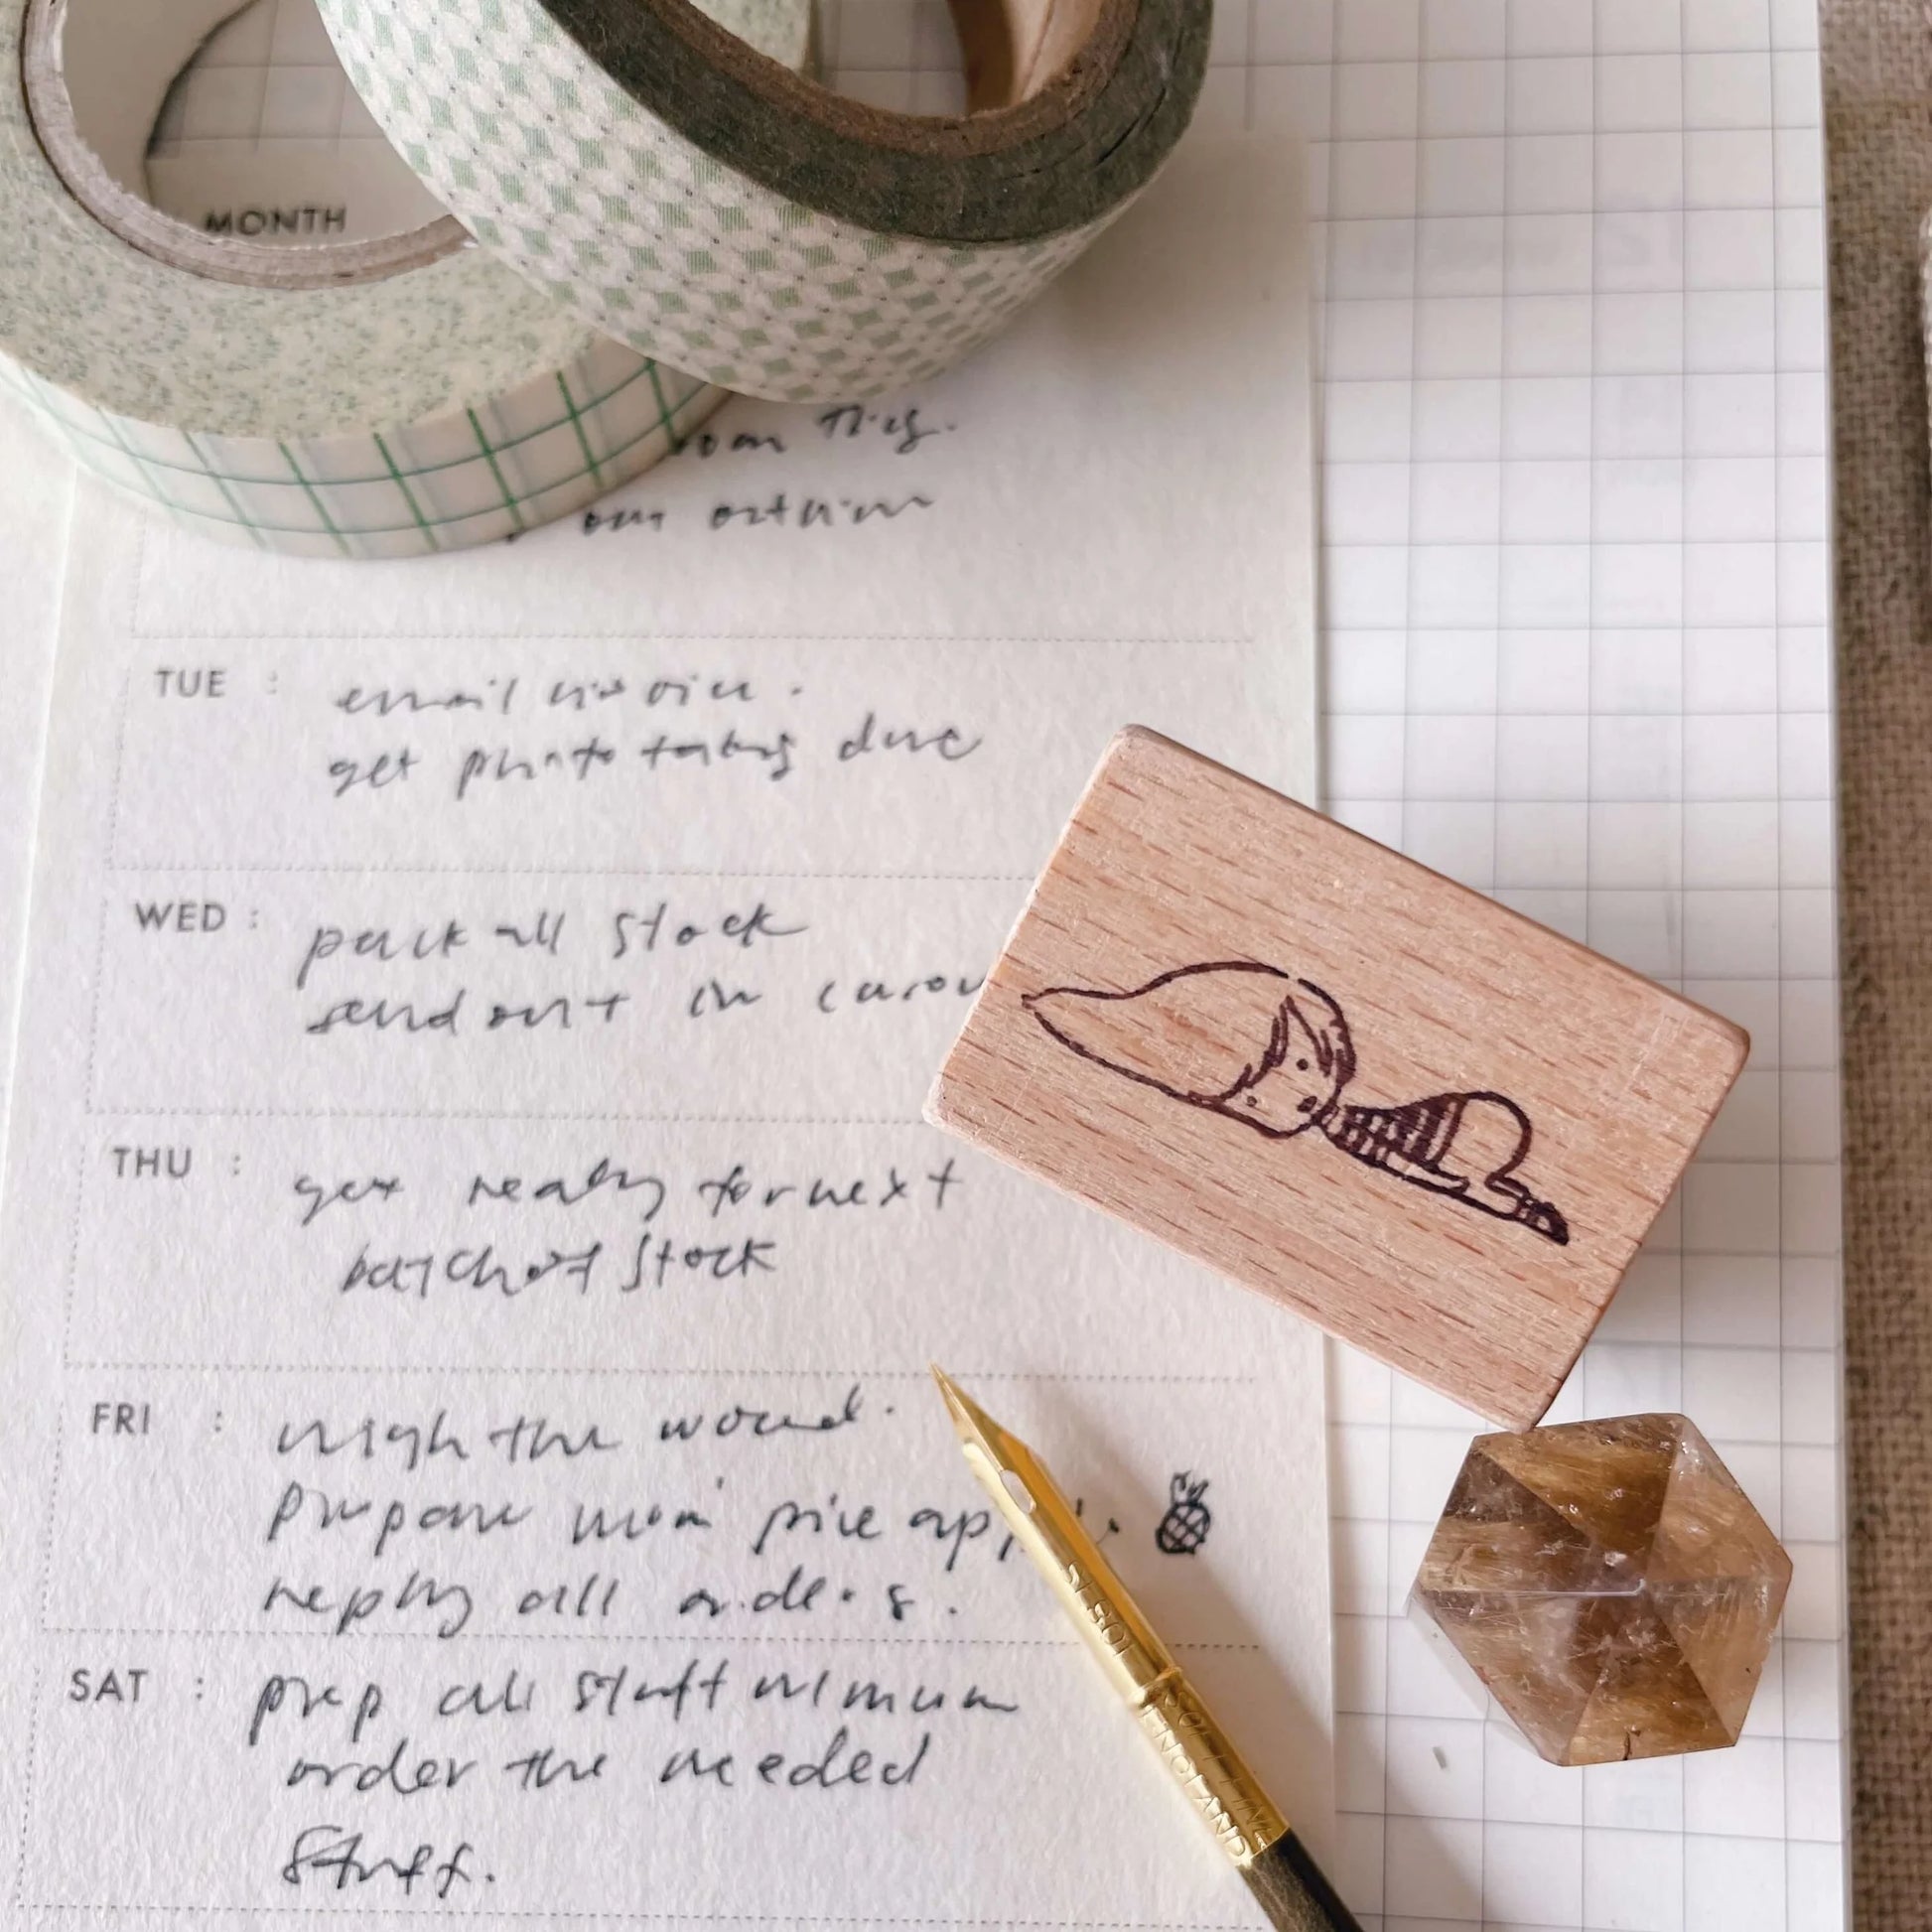 MONTH
TUE : email invoice.
get photo taking done
WED : pack all stock
send out in
THU : get ready for next
batch of stock
FRI : weigh the wound.
prepare mom pineapple.
reply all orders.
SAT : prep all stuff
order the needed
stuff.
ENGLAND